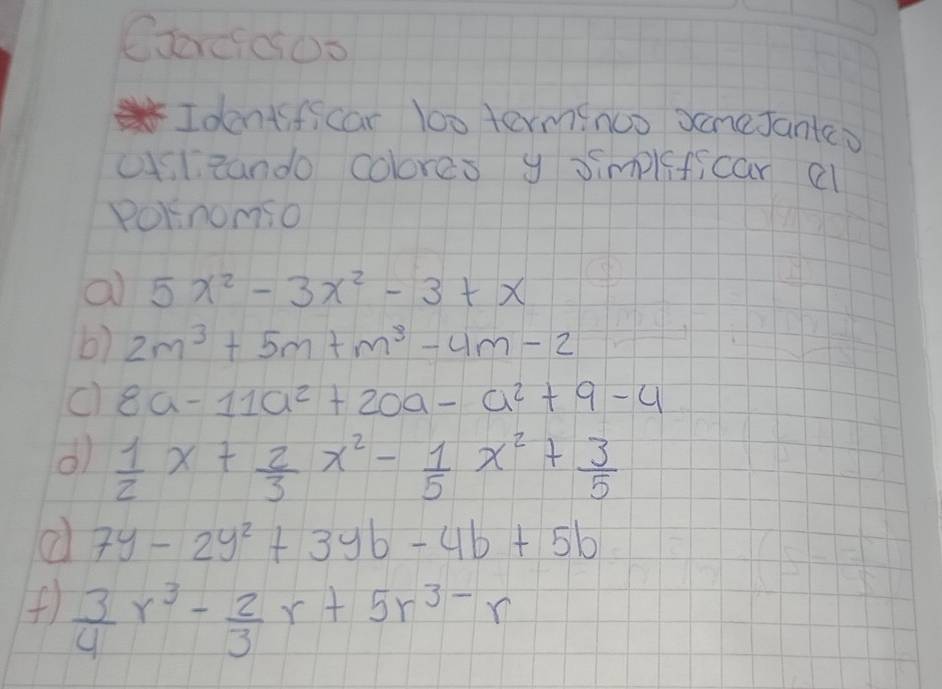 Ejercicios
* Identificar los terminos semejantes
utilizando colores y simplificar el
Polinomio
a) 5x² - 3x² - 3 + x
b) 2m³ + 5m + m³ - 4m - 2
c) 8a - 11a² + 20a - a² + 9 - 4
d) 1/2 x + 2/3 x² - 1/5 x² + 3/5
e) 7y - 2y² + 3yb - 4b + 5b
f) 3/4 r³ - 2/3 r + 5r³ - r